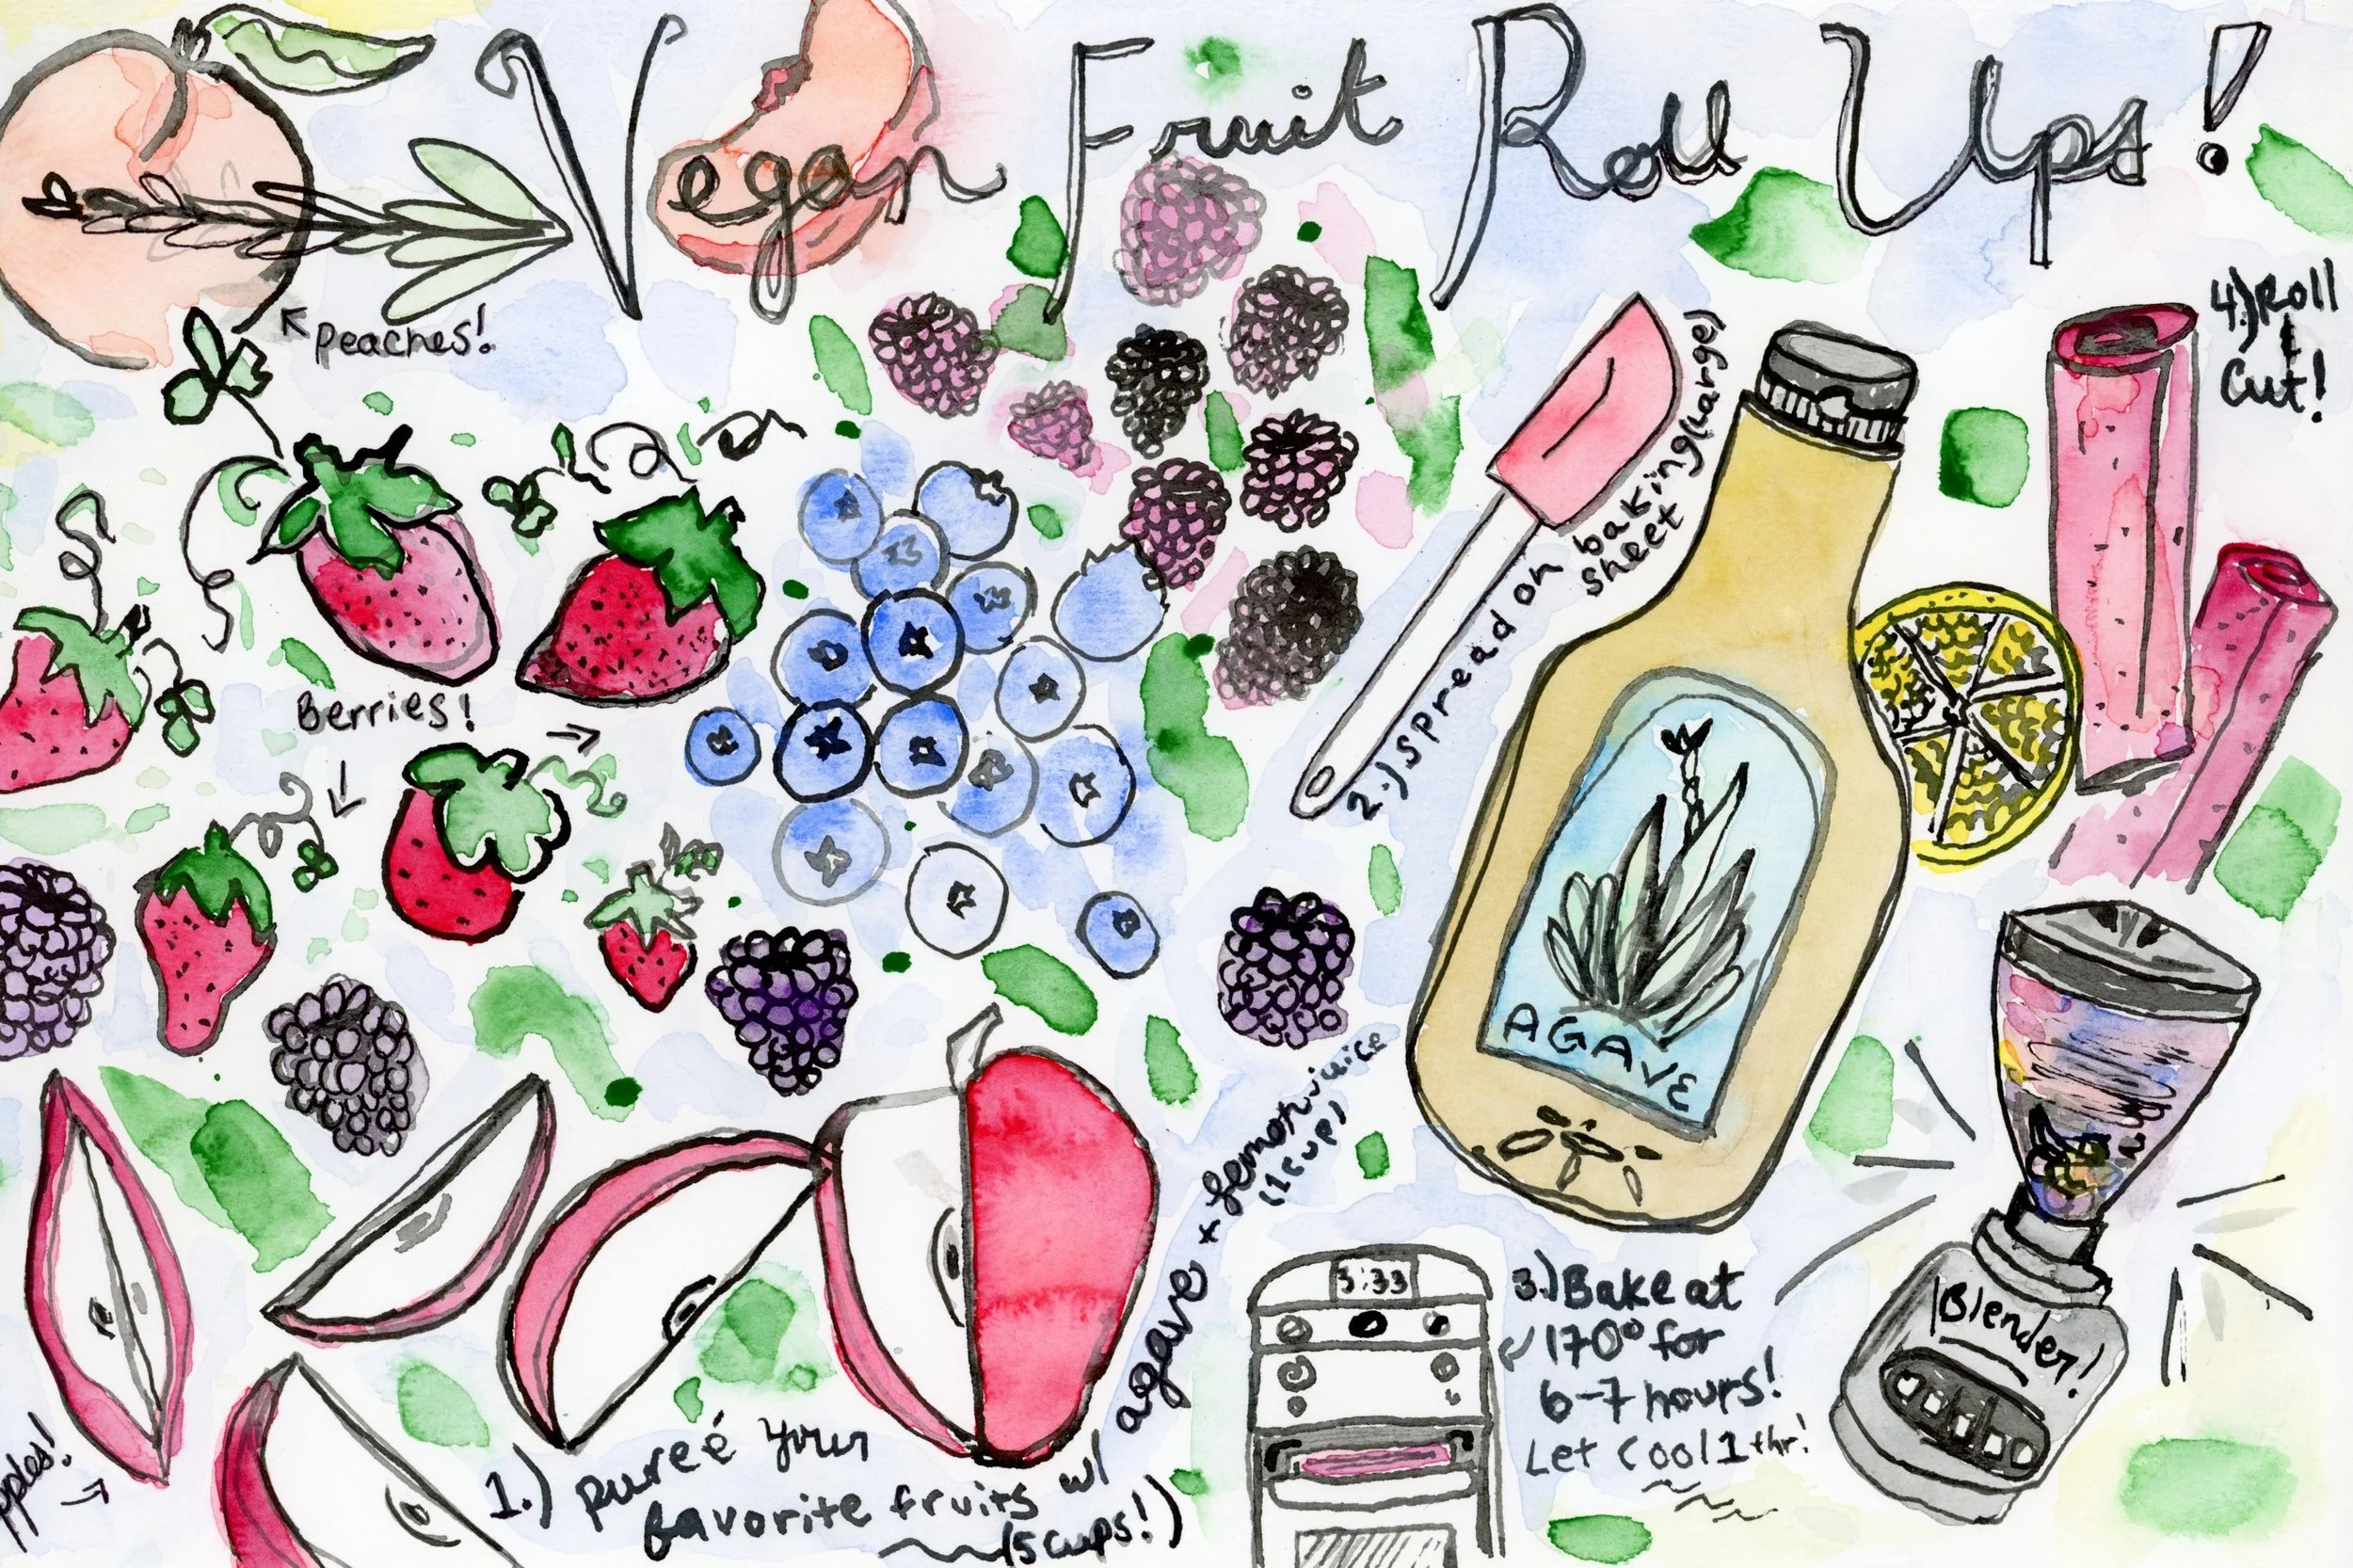 Vegan Fruit Roll Ups!
peaches!
Berries!
pples!
1.) pureé your
favorite fruits w/
(5 cups!)
agave + Lemon juice
(1 cup)
2.) Spread on
baking (large)
sheet
AGAVE
3:33
3.) Bake at
170° for
6-7 hours!
Let Cool 1 + hr!
4.) Roll
+
Cut!
Blender!